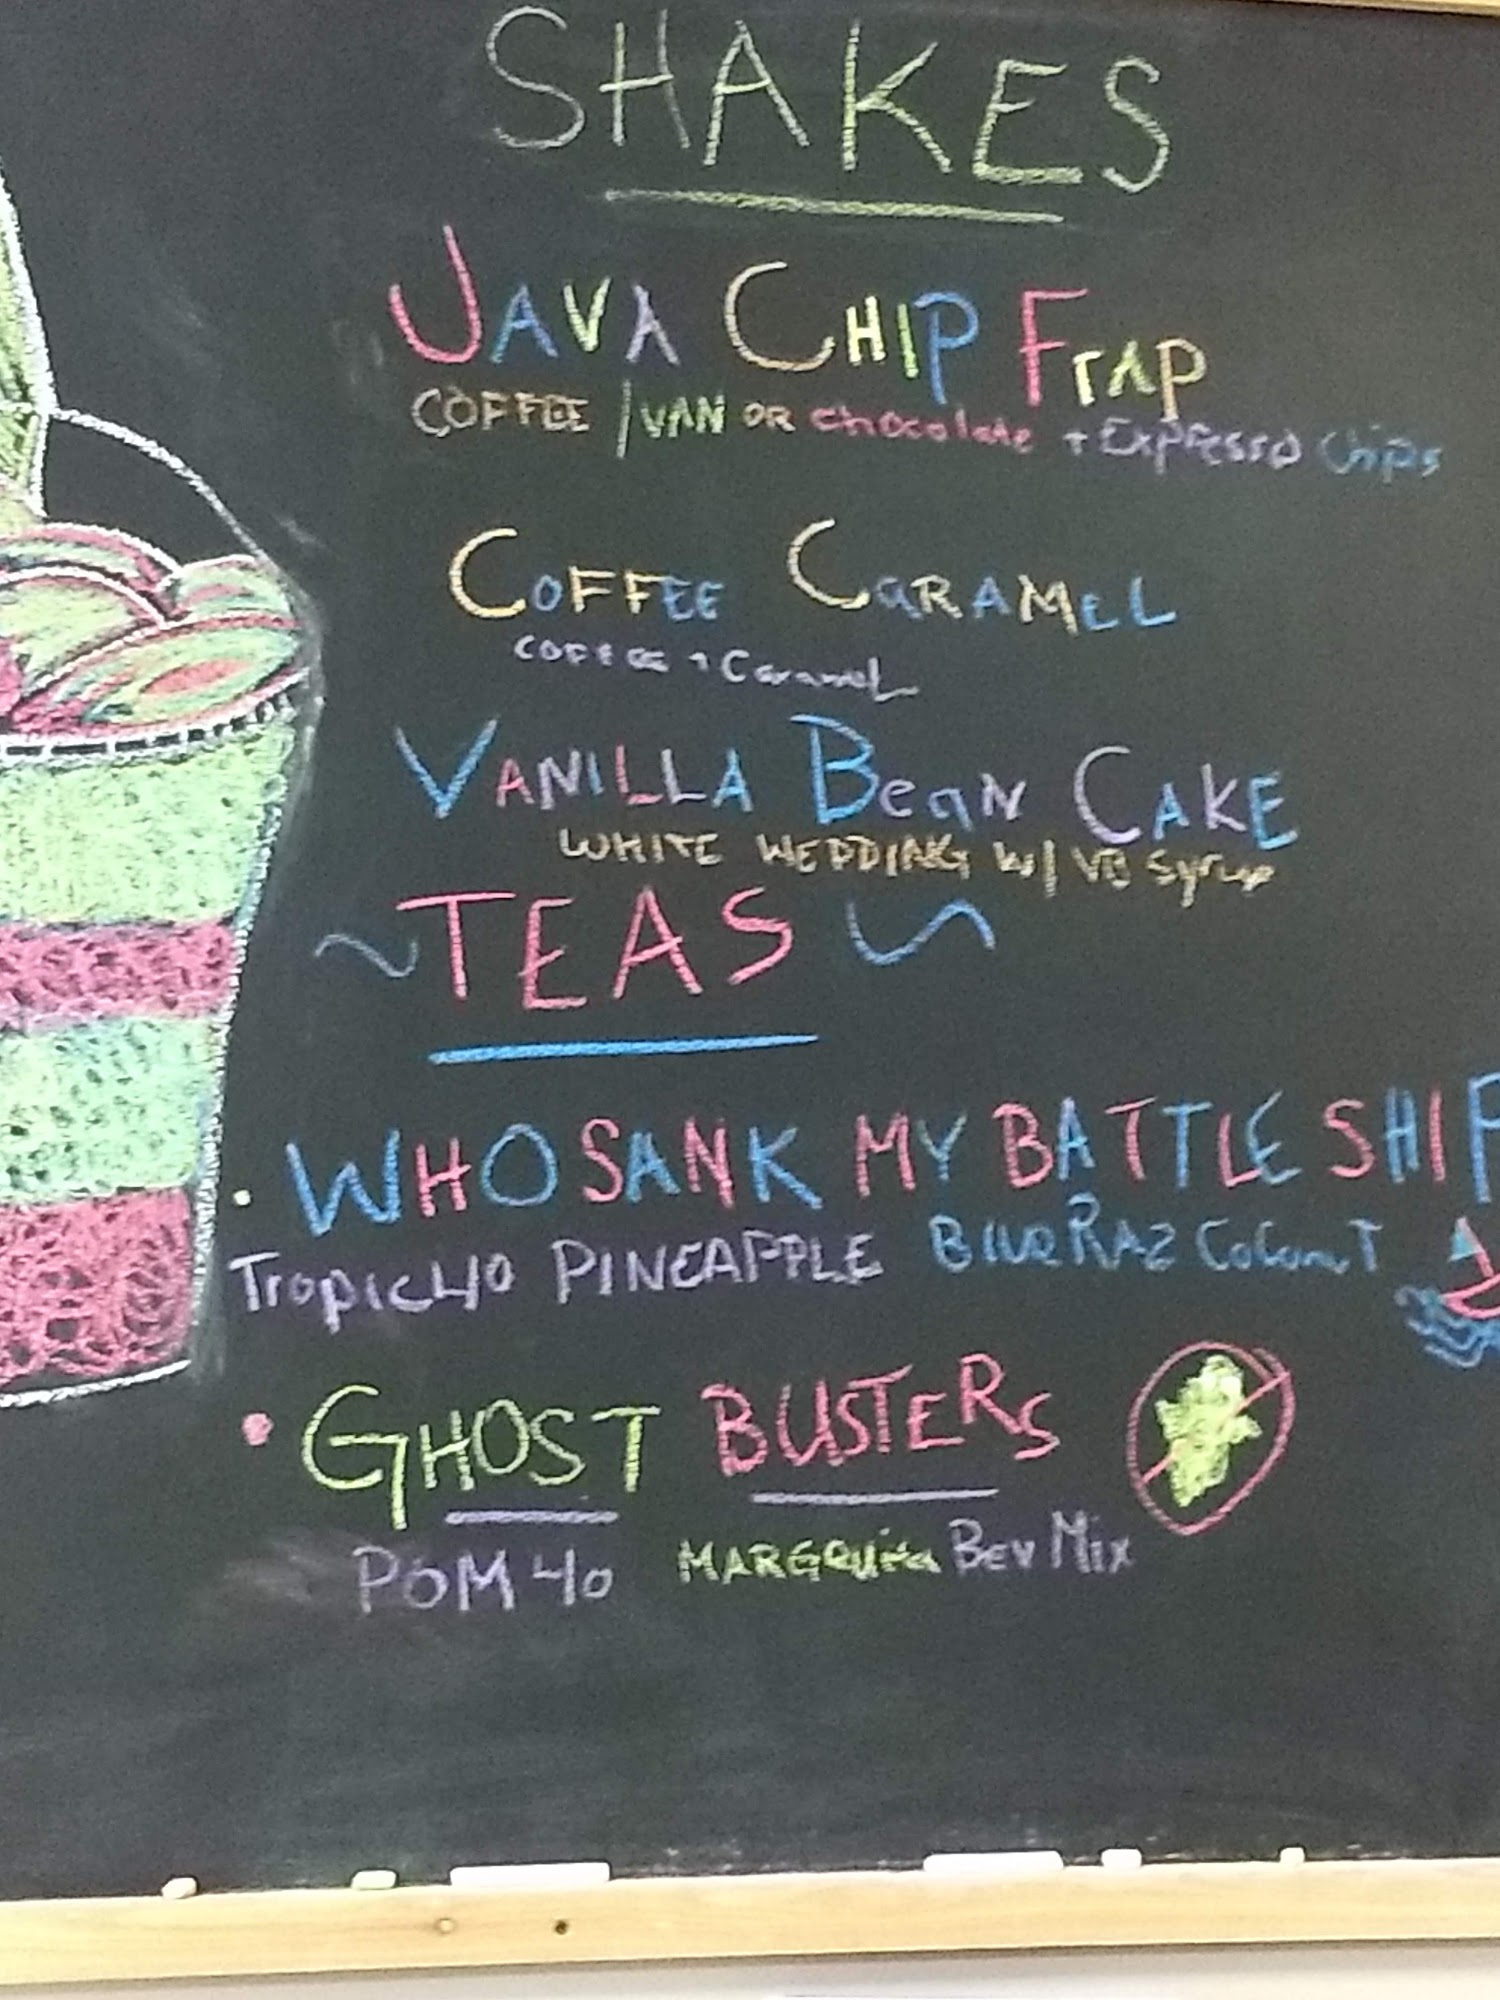 SHAKES
JAVA CHIP FrAP
COFFEE / VAN OR chocolate + Expresso Chips
COFFEE CaRAMEL
COFFEE + Caramel
VANILLA BeaN CAKE
WHITE WEDDING W/ VB Syrup
~ TEAS ~
• WHO SANK MY BATTLE SHIP
Tropic 40 PINEAPPLE Blue RAZ Coconut
• GHOST BUSTERS
POM 40 MARGaRita Bev Mix